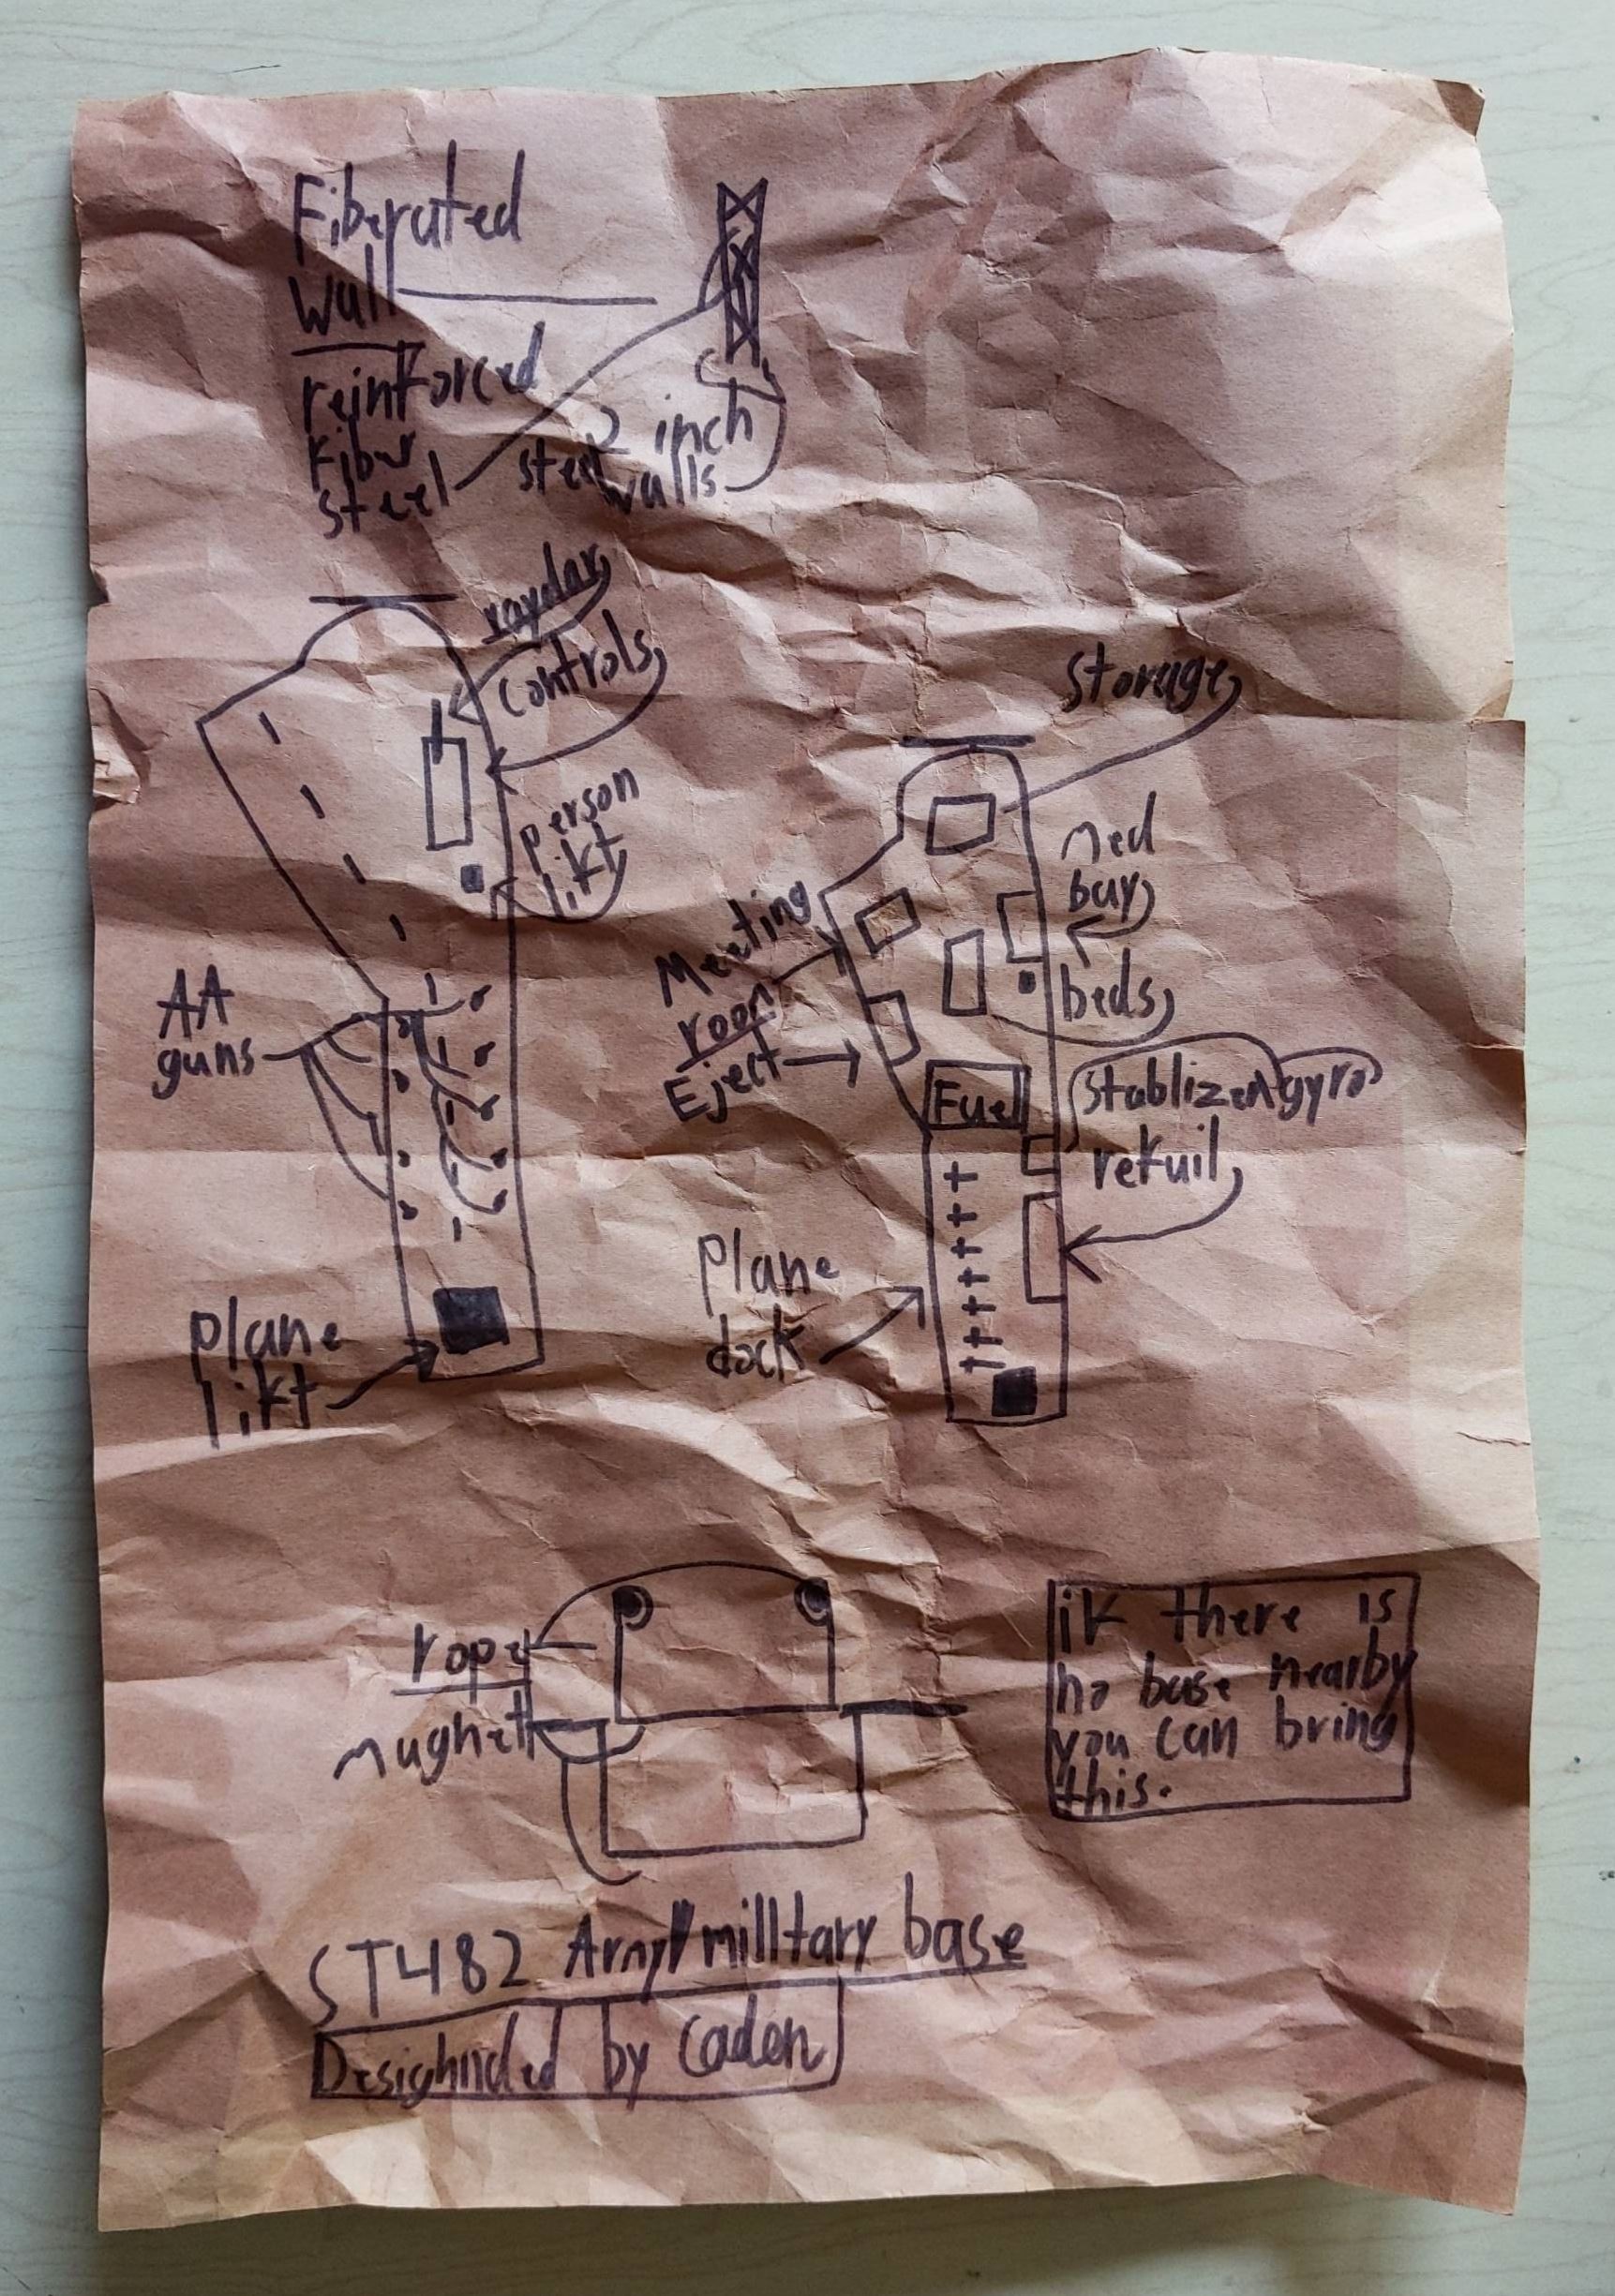 Fiberated
wall
reinforced
Fiber
steel
2 inch
steel walls
raydar
controls
person
likt
AA
guns
plane
likt
storage
Med
bay
beds
Meeting
room
Eject
Fuel
stablizer gyro
refuil
plane
dock
rope
mughet
if there is
no base nearby
you can bring
this.
ST482 Army/milltary base
Desighnded by Caden